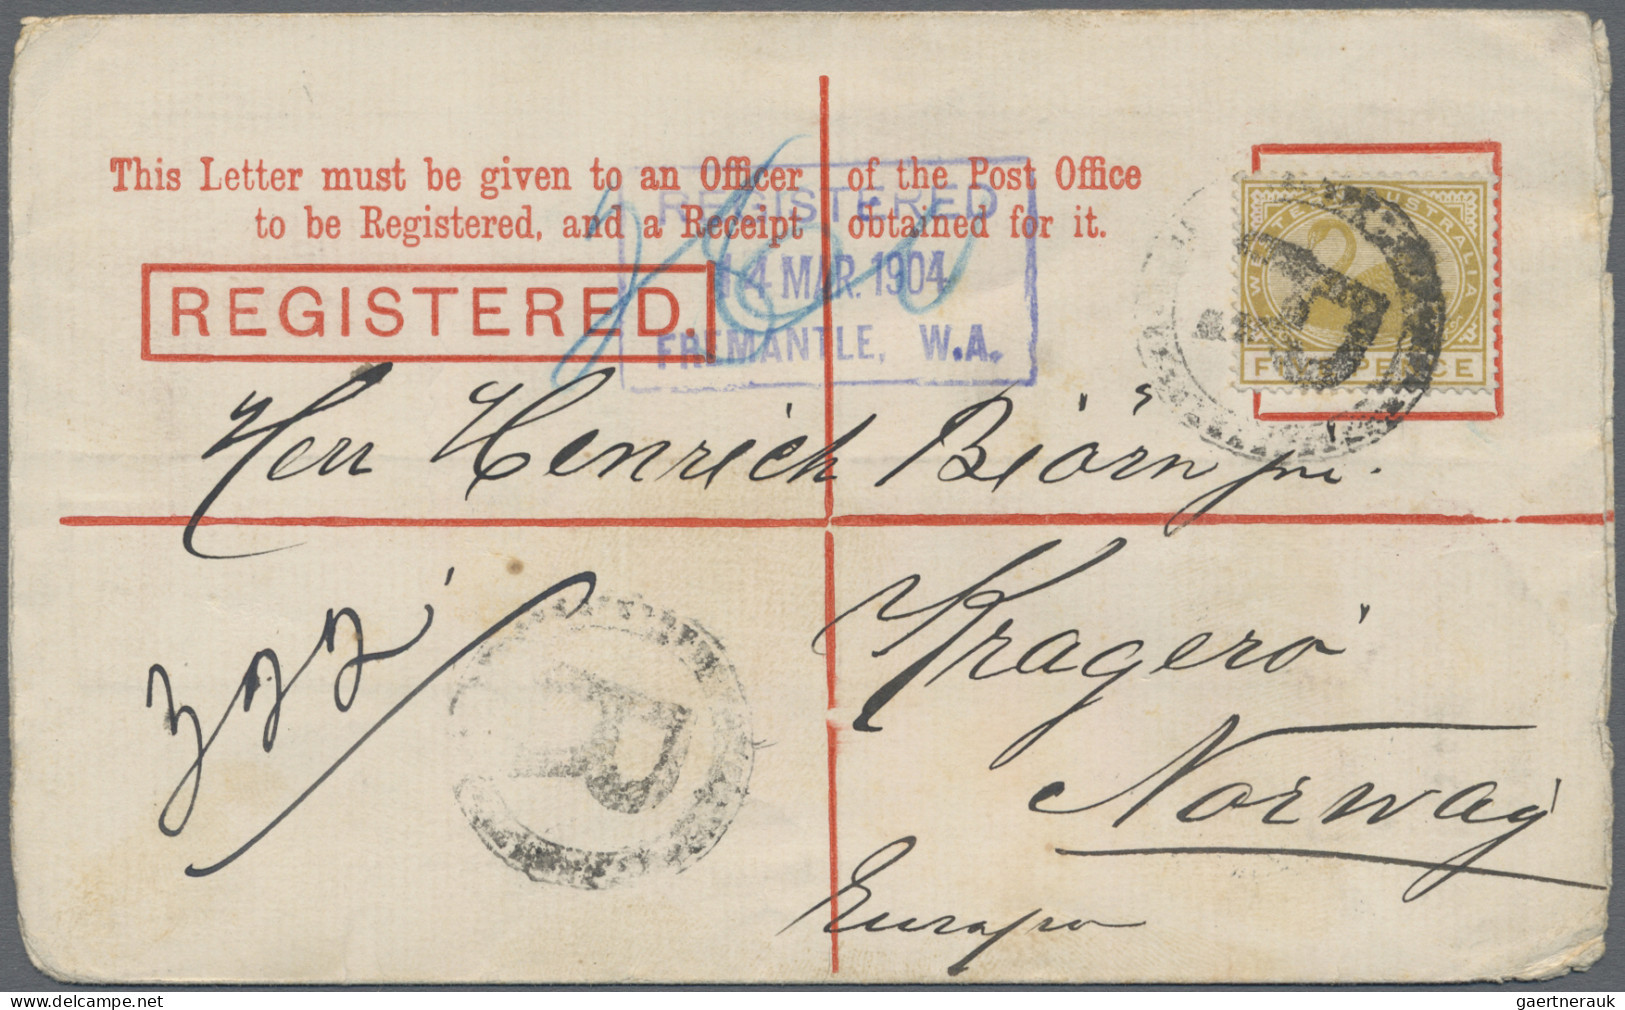 This Letter must be given to an Officer of the Post Office
to be Registered, and a Receipt obtained for it.
REGISTERED.
REGISTERED
14 MAR. 1904
FREMANTLE, W.A.
WESTERN AUSTRALIA
FIVE PENCE
R
Herr Henrich Biörn jun.
Kragerö
Norway
Europa
332
R
gaertnerauk